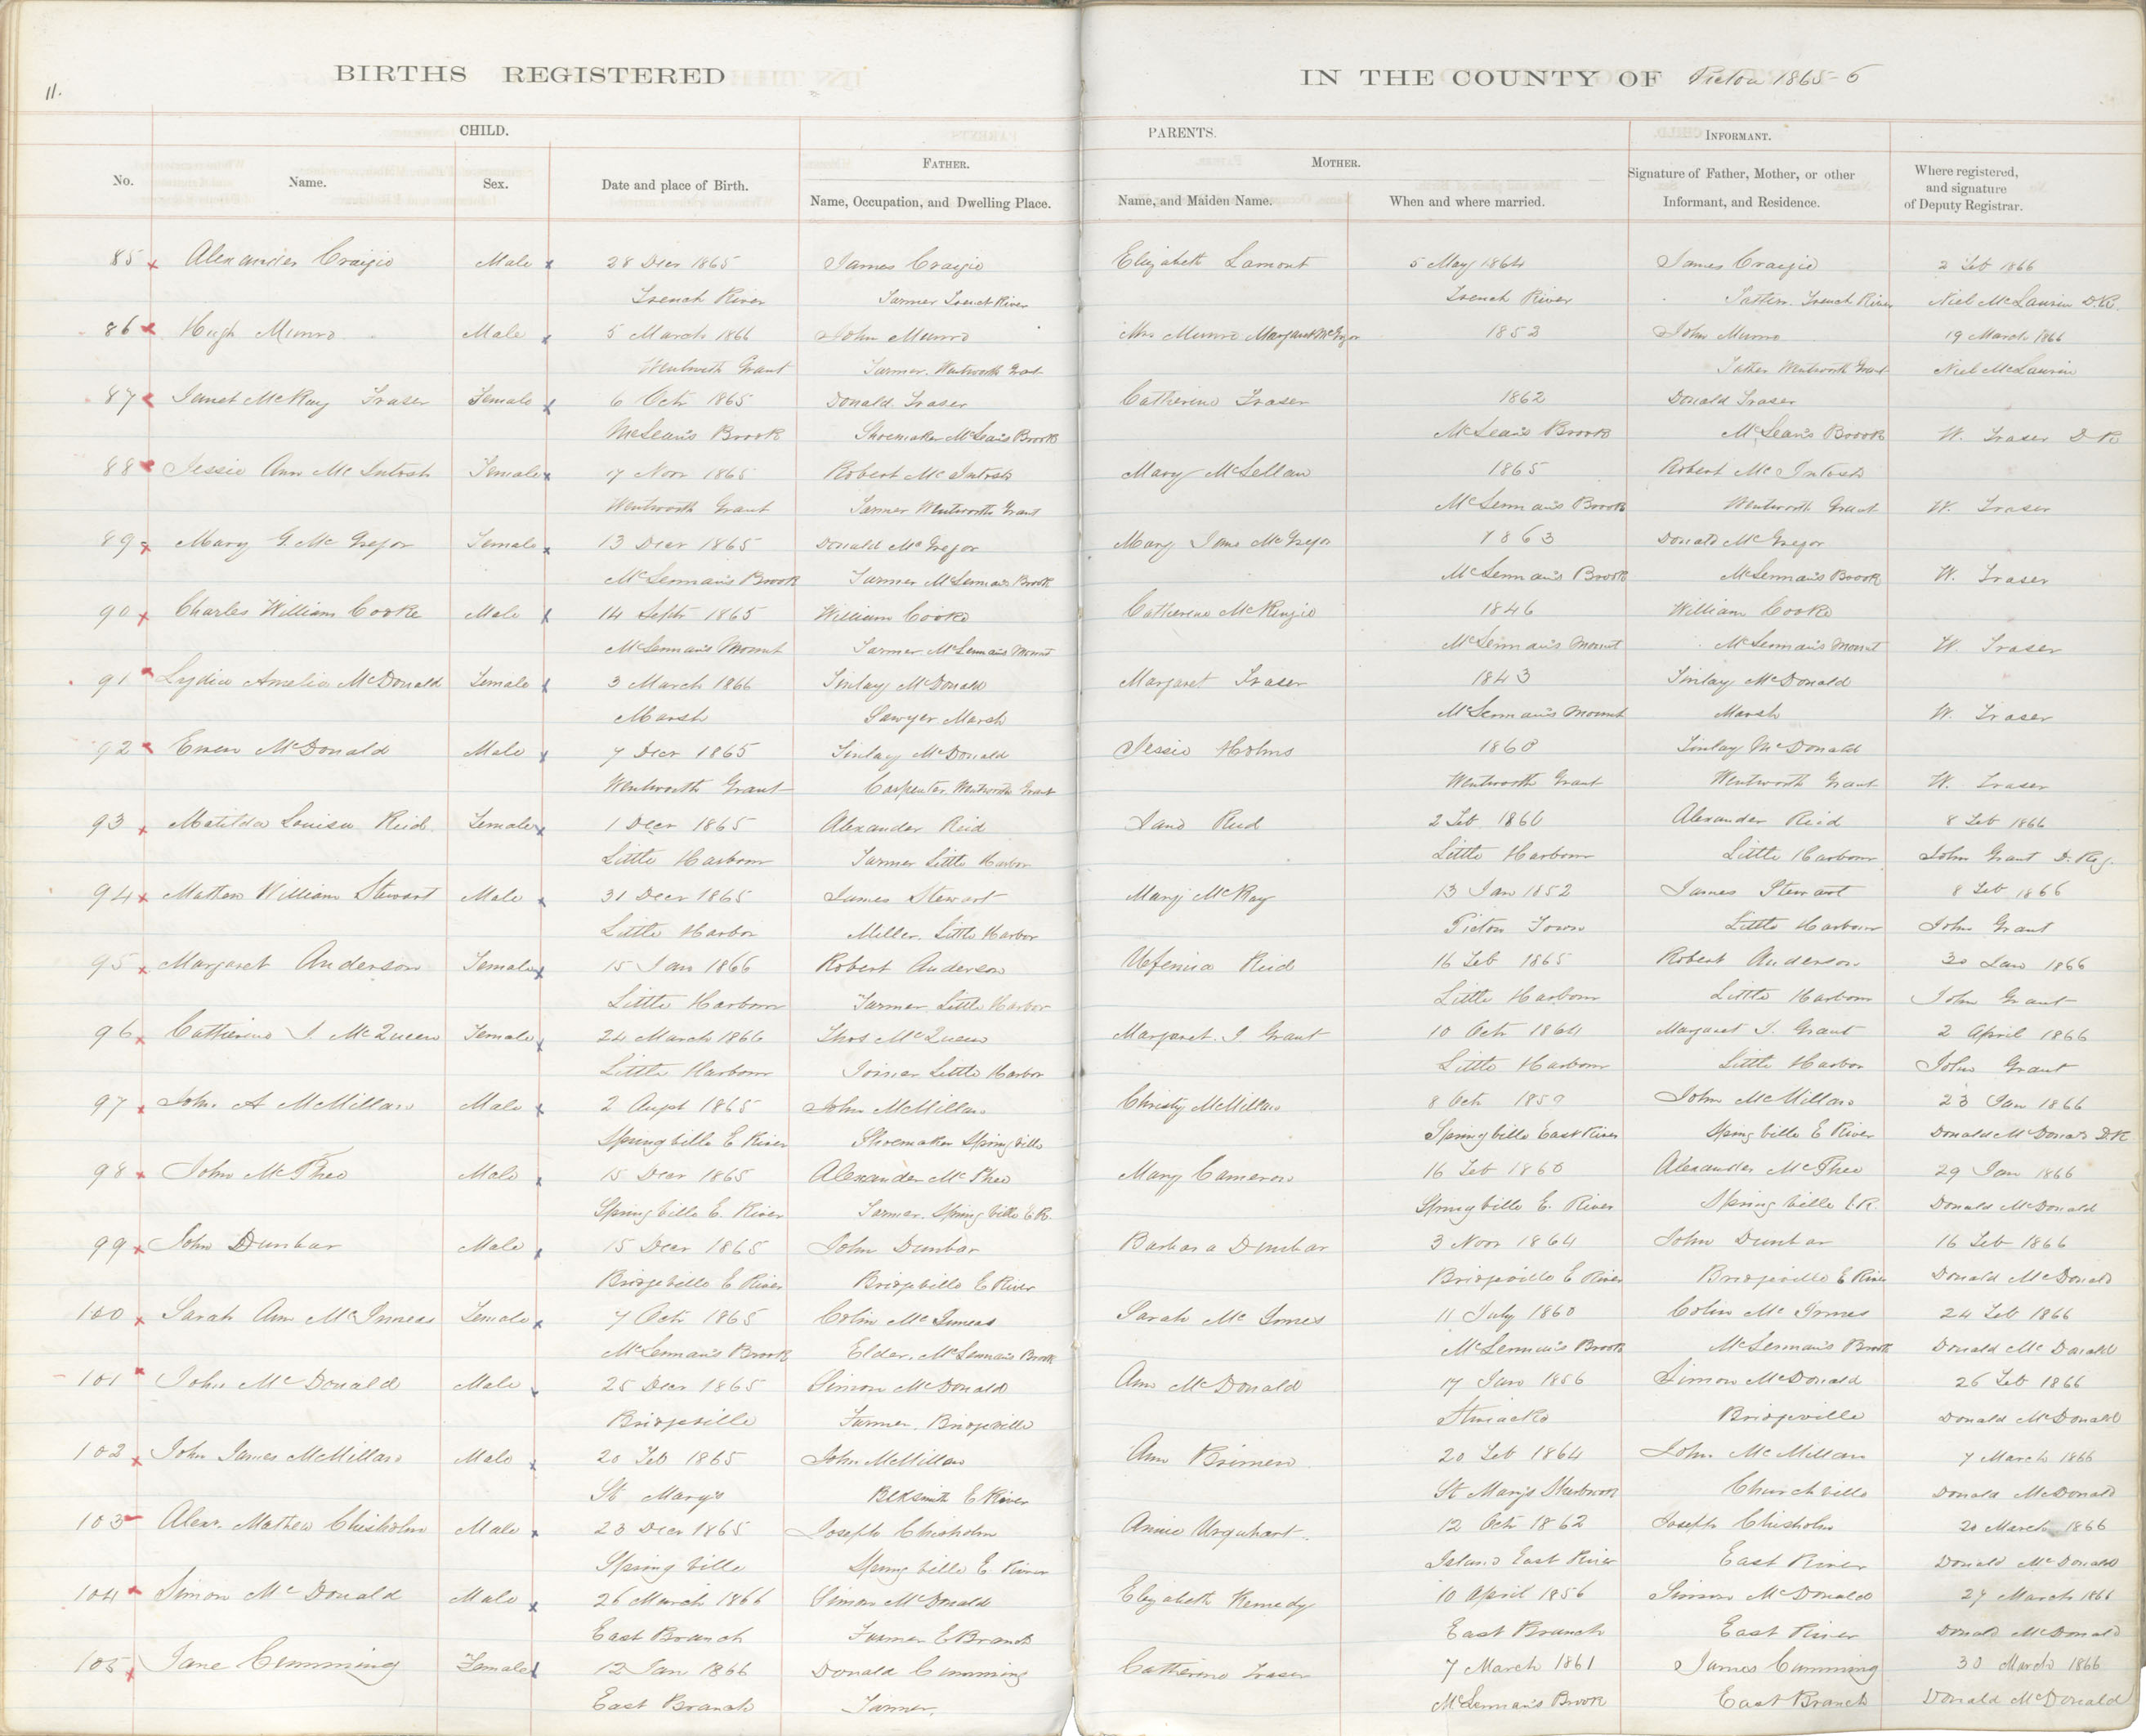 11.
BIRTHS REGISTERED IN THE COUNTY OF Pictou 1865-6
CHILD. PARENTS. INFORMANT.
FATHER. MOTHER.
No. Name. Sex. Date and place of Birth. Name, Occupation, and Dwelling Place. Name, and Maiden Name. When and where married. Signature of Father, Mother, or other Informant, and Residence. Where registered, and signature of Deputy Registrar.
85 Alexander Craigie Male 28 Decr 1865 James Craigie Elizabeth Lamont 5 May 1864 James Craigie 2 Feb 1866
French River Farmer French River French River Father French River Niel McLaurin D.R.
86 Hugh Munro Male 5 March 1866 John Munro Mrs Munro Margaret McGregor 1853 John Munro 19 March 1866
Wentworth Grant Farmer. Wentworth Grant Father Wentworth Grant Niel McLaurin
87 Janet McKay Fraser Female 6 Octr 1865 Donald Fraser Catherine Fraser 1862 Donald Fraser
McLean's Brook Shoemaker McLean's Brook McLean's Brook McLean's Brook W. Fraser D R
88 Jessie Ann McIntosh Female 17 Novr 1865 Robert McIntosh Mary McLellan 1865 Robert McIntosh
Wentworth Grant Farmer Wentworth Grant McLennan's Brook Wentworth Grant W. Fraser
89 Mary G. McGregor Female 13 Decr 1865 Donald McGregor Mary Jane McGregor 1863 Donald McGregor
McLennan's Brook Farmer McLennan's Brook McLennan's Brook McLennan's Brook W. Fraser
90 Charles William Cooke Male 14 Septr 1865 William Cooke Catherine McKenzie 1846 William Cooke
McLennan's Mount Farmer McLennan's Mount McLennan's Mount McLennan's Mount W. Fraser
91 Lydia Amelia McDonald Female 3 March 1866 Finlay McDonald Margaret Fraser 1843 Finlay McDonald
Marsh Sawyer Marsh McLennan's Mount Marsh W. Fraser
92 Ewen McDonald Male 7 Decr 1865 Finlay McDonald Jessie Holms 1860 Finlay McDonald
Wentworth Grant Carpenter, Wentworth Grant Wentworth Grant Wentworth Grant W. Fraser
93 Matilda Louisa Reid Female 1 Decr 1865 Alexander Reid Jane Reid 2 Feb 1860 Alexander Reid 8 Feb 1866
Little Harbour Farmer Little Harbor Little Harbour Little Harbour John Grant D. Reg.
94 Mathew William Stewart Male 31 Decr 1865 James Stewart Mary McKay 13 Jan 1852 James Stewart 8 Feb 1866
Little Harbor Miller. Little Harbor Pictou Town Little Harbour John Grant
95 Margaret Anderson Female 15 Jan 1866 Robert Anderson Ufemia Reid 16 Feb 1865 Robert Anderson 30 Jan 1866
Little Harbour Farmer Little Harbor Little Harbour Little Harbour John Grant
96 Catherine J. McQueen Female 24 March 1866 Thos McQueen Margaret J. Grant 10 Octr 1864 Margaret J. Grant 2 April 1866
Little Harbour Joiner Little Harbor Little Harbour Little Harbor John Grant
97 John A McMillan Male 2 Augst 1865 John McMillan Christy McMillan 8 Octr John McMillan 23 Jan 1866
Springville E River Shoemaker Springville Springville East River Springville E River Donald McDonald D.R.
98 John McPhee Male 15 Decr 1865 Alexander McPhee Mary Cameron 16 Feb 1860 Alexander McPhee 29 Jan 1866
Springville E. River Farmer. Springville E R. Springville E. River Springville E R. Donald McDonald
99 John Dunbar Male 15 Decr 1865 John Dunbar Barbara Dunbar 3 Novr 1864 John Dunbar 16 Feb 1866
Bridgeville E River Bridgeville E River Bridgeville E River Bridgeville E River Donald McDonald
100 Sarah Ann McInneas Female 7 Octr 1865 Colin McInneas Sarah McInnes 11 July 1860 Colin McInnes 24 Feb 1866
McLennan's Brook Elder, McLennan's Brook McLennan's Brook McLennan's Brook Donald McDonald
101 John McDonald Male 25 Decr 1865 Simon McDonald Ann McDonald 17 Jan 1856 Simon McDonald 26 Feb 1866
Bridgeville Farmer, Bridgeville Stewiacke Bridgeville Donald McDonald
102 John James McMillan Male 20 Feb 1865 John McMillan Ann Brimen 20 Feb 1864 John McMillan 7 March 1866
St Mary's Blksmith E River St Marys Sherbrook Churchville Donald McDonald
103 Alexr. Mathew Chisholm Male 23 Decr 1865 Joseph Chisholm Annie Urquhart. 12 Octr 1862 Joseph Chisholm 20 March 1866
Springville Springville E River Island East River East River Donald McDonald
104 Simon McDonald Male 26 March 1866 Simon McDonald Elizabeth Kennedy 10 April 1856 Simon McDonald 27 March 1866
East Branch Farmer E Branch East Branch East River Donald McDonald
105 Jane Cumming Female 12 Jan 1866 Donald Cumming Catherine Fraser 7 March 1861 James Cumming 30 March 1866
East Branch Farmer. McLennan's Brook East Branch Donald McDonald